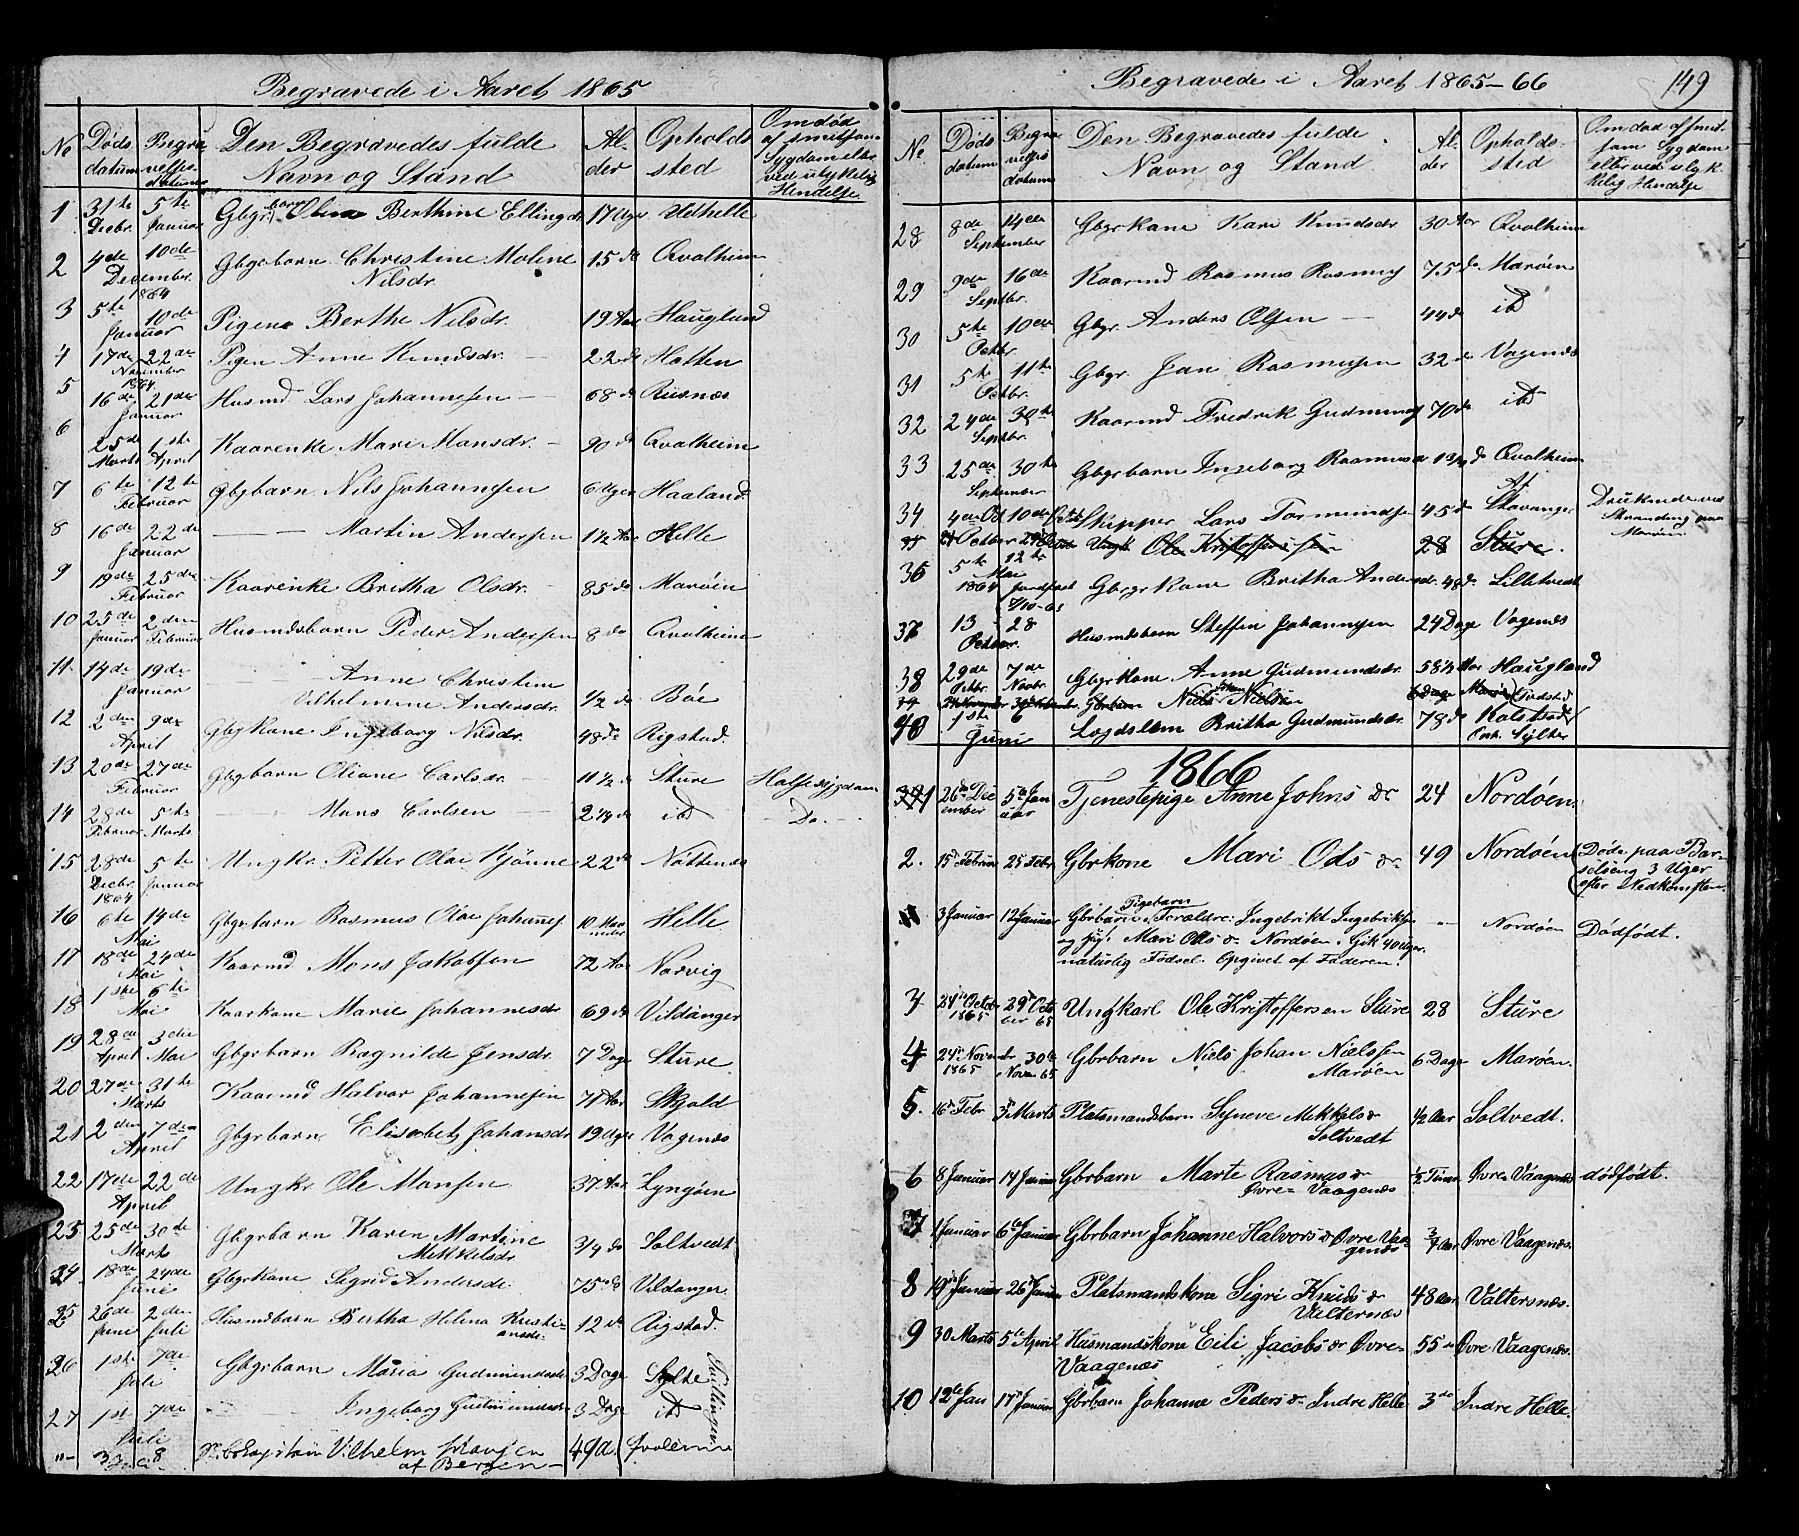 Begravede i Aaret 1865
No Døds datum Begravelses datum Den Begravedes fulde Navn og Stand Alder Opholdssted Om død af smitsom Sygdom eller ved ulykkelig Hendelse
1 31te Decbr. 5te Januar Gbgr. barn Berthine Ellingdr. 17 Uger Uelhelle
2 4de December 1864 10de Gbgrbarn Christine Moline Nilsdr. 15 do Qvalheim
3 5te Januar 10de Pigen Berthe Nilsdr. 19 Aar Haugland
4 17de November 1864 22de Pigen Anne Knudsdr. 22 do Hatten
5 16de Januar 21de Husmd. Lars Johannesen 68 do Risnæs
6 25de Marts 1ste April Kaarenke Mari Monsdr. 90 do Qvalheim
7 6te Februar 12te Gbgbarn Nils Johannesen 6 Uger Haaland
8 16de Januar 22de Martin Andersen 1½ Aar Helle
9 19de Februar 25de Kaarenke Britha Olsdr. 85 do Marøen
10 25de Januar 2den Februar Husmdsbarn Peder Andersen 8 do Qvalheim
11 14de Januar 19de Anne Christine Vilhelmine Andersdr. ½ do Bøe
12 2den April 9de Gbgkane Ingeborg Nilsdr. 48 do Rigstad.
13 20de Februar 27de Gbgbarn Oliane Carlsdr. 11½ do Sture Halssygdom
14 28de Februar 5te Marts Mons Carlsen 2¼ do id Do.
15 28de Decbr. 1864 5te Januar Ungkr. Petter Olai 22 do Nøttenæs
16 6te Mai 14de Gbgrbarn Rasmus Olai Johannes. 10 Maaneder Helle
17 18de Mai 24de Kaarmd Mons Jakobsen 72 Aar Norvig
18 1ste Mai 6te Kaarkone Marie Johannesdr 69 do Vildanger
19 28de April 3die Mai Gbgrbarn Ragnilde Jensdr. 7 Dage Sture.
20 27de Marts 31te Kaarmd Halvor Johannesen 71 Aar Skjold
21 2den April 7de Gbgrbarn Elisabet Johansdr 19 Uger Vagenæs
22 17de April 22de Ungkr. Ole Monsen 37 Aar Lyngøen
23 25de Marts 30de Gbgrbarn Karen Martine Mikkelsdr ¾ do Soltvedt
24 18de Juni 24de Gbgrkone Sigrid Andersdr. 75 do Vildanger.
25 26de Juni 2den Juli Husmdbarn Bertha Helena Kristiansdr. 12 do Rigstad.
26 1ste Juli 7de Gbgrbarn Maria Gudmundsdr 3 Dage Sylte Tvillinger
27 1st Juli 7de Ingeborg Gudmundsdr 3 Dage id
"- 3 Juli 8 Vilhelm af Bergen 49
Begravede i Aaret 1865-66 149
No. Døds datum Begravelses datum Den Begravedes fulde Navn og Stand Alder Opholdssted Om død af smitsom Sygdom eller ved ulykkelig Hendelse
28 8de September 14de Gbgrkane Kari Knudsdr 30 Aar Qvalheim
29 9de Septbr. 16de Kaarmd Rasmus Rasmus 75 do Marøen
30 5te Octbr. 10de Gbgr. Anders Olsen 44 do id
31 5te Octbr. 11te Gbgr. Jan Rasmusen 32 do Vagenæs
32 24de Septbr. 30te Kaarmd Fredrik Gudmunds 70 do id
33 25de September 30te Gbgrbarn Ingeborg Rasmusdr Qvalheim
34 4de Oct 10de Octb Skipper Lars Tormundse 45 do Af Stavanger Druknede ved Stranding paa Marøen
35 24 Octbr 29 Octob Ungk. Ole Kristoffersen 28 Sture.
36 5te Mai 1864 12te Jordfæst 7/10-65 Gbgrkone Britha Andersdr. 48 do Liltvedt
37 13 Octbr. 28 Husmdsbarn Steffen Johannesen 24 Dage Vagenæs
38 29de Octbr. 7de Novbr. Gbgrkone Anne Gudmundsdr. 58½ Aar Haugland
39 24 November 30 Gbrbarn Niels Johan Nielsen 6 Dage Marøn
40 1ste Juni 6 Lægdslem Britha Gudmundsdr. 78 do Sylter
1866
1 26de December 5te Januar Tjenestepige Anne Johnsdr 24 Nordøen.
2. 15de Februar 25de Febr. Gbrkone Mari Odsdr 49 Nordøen Døde paa Barselseng 3 Uger efter Nedkomsten.
3 Januar 12 Januar Gbrbarn Pigebarn Forældre: Ingebrikt Ingebriktsen og Pige Mari Odsdr Nordøen. Gik 40 Uger. naturlig Fødsel. Opgivet af Faderen. — Nordøen Dødfødt.
3 24de Octobr 1865 29de October 65 Ungkarl Ole Kristoffersen Sture 28 Sture
4 24de Novembr 1865 30te Novem 65 Gbrbarn Niels Johan Nielssen Marøen 6 Dage Marøen.
5. 16de Febr 3de Marts Platsmandsbarn Synneve Mikkelsdr Soltvedt ½ Aar Soltvedt.
6 8 Januar 14 Januar Gbrbarn Marte Rasmusdr Øvre Vaagenæs ½ Time Øvre Vaagenæs dødfødt.
7 1 Januar 6te Januar Gbrbarn Johanne Halvorsdr Øvre Vaagenæs ¾ Aar Øvre Vaagenæs.
8 19de Januar 26de Januar Platsmandskone Sigri Knudsdr Valternæs 48 Aar Valtersnæs.
9 30 Marts 5te April Husmandskone Eili Jacobsdr Øvre Vaagenæs 55 do Øvre Vaagenæs.
10 12te Jan 17de Januar Gbrbarn Johanne Pedersdr Indre Helle 3 do Indre Helle.